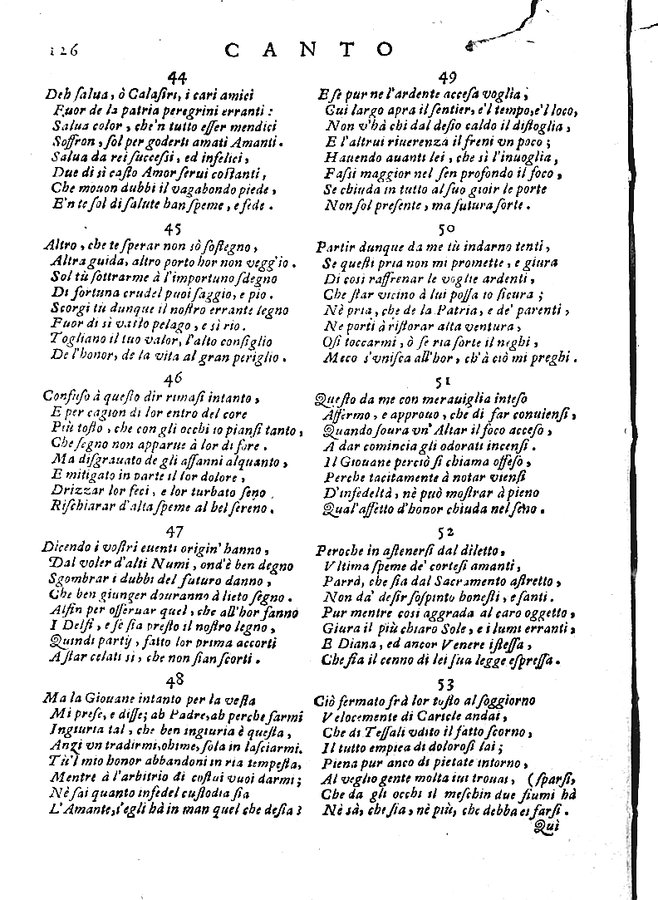 126 CANTO
44
Deh ſalua, ò Calaſiri, i cari amici
Fuor de la patria peregrini erranti:
Salua color, che'n tutto eſſer mendici
Soffron, ſol per goderſi amati Amanti.
Salua da rei ſucceſſi, ed infelici,
Due di sì caſto Amor ſerui coſtanti,
Che mouon dubbi il vagabondo piede,
E'n te ſol di ſalute han ſpeme, e fede.
45
Altro, che te ſperar non sò ſoſtegno,
Altra guida, altro porto hor non veggio.
Sol tù ſottrarme à l'importuno ſdegno
Di fortuna crudel puoi ſaggio, e pio.
Scorgi tù dunque il noſtro errante legno
Fuor di sì vaſto pelago, e sì rio.
Togliano il tuo valor, l'alto conſiglio
De l'honor, de la vita al gran periglio.
46
Confuſo à queſto dir rimaſi intanto,
E per cagion di lor entro del core
Più toſto, che con gli occhi io pianſi tanto,
Che ſegno non apparue à lor di fore.
Ma diſgrauato de gli affanni alquanto,
E mitigato in parte il lor dolore,
Drizzar lor feci, e lor turbato ſeno
Riſchiarar d'alta ſpeme al bel ſereno.
47
Dicendo i voſtri euenti origin' hanno,
Dal voler d'alti Numi, ond'è ben degno
Sgombrar i dubbi del futuro danno,
Che ben giunger douranno à lieto ſegno.
Alfin per oſſeruar quel, che all'hor fanno
I Delfi, e ſe ſia preſto il noſtro legno,
Quindi partij, fatto lor prima accorti
A ſtar celati sì, che non ſian ſcorti.
48
Ma la Giouane intanto per la veſta
Mi preſe, e diſſe; ah Padre, ah perche farmi
Ingiuria tal, che ben ingiuria è queſta,
Anzi vn tradirmi, ohime, ſola in laſciarmi.
Tù'l mio honor abbandoni in ria tempeſta,
Mentre à l'arbitrio di coſtui vuoi darmi;
Nè ſai quanto infedel cuſtodia ſia
L'Amante, s'egli hà in man quel che deſia?
49
E ſe pur ne l'ardente acceſa voglia,
Gui largo apra il ſentier, e'l tempo, e'l loco,
Non v'hà chi dal deſio caldo il diſtoglia,
E l'altrui riuerenza il freni vn poco;
Hauendo auanti lei, che sì l'inuoglia,
Faſſi maggior nel ſen profondo il foco,
Se chiuda in tutto al ſuo gioir le porte
Non ſol preſente, ma futura ſorte.
50
Partir dunque da me tù indarno tenti,
Se queſti pria non mi promette, e giura
Di così raffrenar le voglie ardenti,
Che ſtar vicino à lui poſſa io ſicura;
Nè pria, che de la Patria, e de' parenti,
Ne porti à riſtorar alta ventura,
Oſi toccarmi, ò ſe ria ſorte il neghi,
Meco s'vniſca all'hor, ch'à ciò mi preghi.
51
Queſto da me con merauiglia inteſo
Affermo, e approuo, che di far conuienſi,
Quando ſoura vn' Altar il foco acceſo,
A dar comincia gli odorati incenſi.
Il Giouane perciò ſi chiama offeſo,
Perche tacitamente à notar vienſi
D'infedeltà, nè può moſtrar à pieno
Qual'affetto d'honor chiuda nel ſeno.
52
Peroche in aſtenerſi dal diletto,
Vltima ſpeme de' corteſi amanti,
Parrà, che ſia dal Sacramento aſtretto,
Non da' deſir ſoſpinto honeſti, e ſanti.
Pur mentre così aggrada al caro oggetto,
Giura il più chiaro Sole, e i lumi erranti,
E Diana, ed ancor Venere iſteſſa,
Che ſia il cenno di lei ſua legge eſpreſſa.
53
Ciò fermato frà lor toſto al ſoggiorno
Velocemente di Caricle andai,
Che di Teſſali vdito il fatto ſcorno,
Il tutto empiea di doloroſi lai;
Piena pur anco di pietate intorno,
Al veglio gente molta iui trouai, (ſparſi,
Che da gli occhi il meſchin due fiumi hà
Nè sà, che ſia, nè più, che debba ei farſi.
Qui